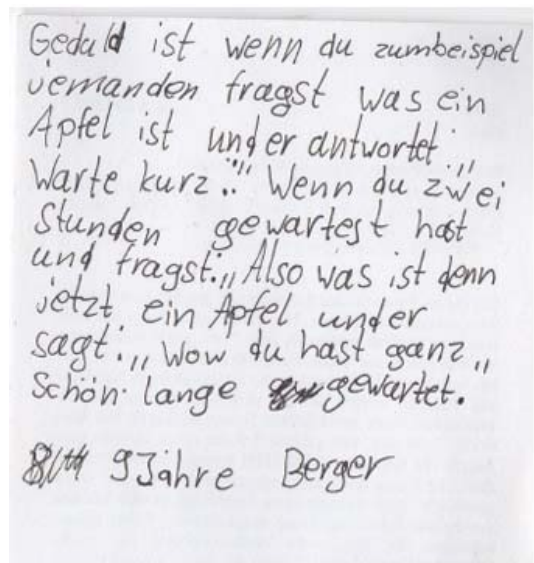 Geduld ist wenn du zumbeispiel
jemanden fragst was ein
Apfel ist und er antwortet:„
Warte kurz.“ Wenn du zwei
Stunden gewartest hast
und fragst:„Also was ist denn
jetzt ein Apfel und er
sagt:„Wow du hast ganz„
Schön lange gewartet.
9 Jahre Berger